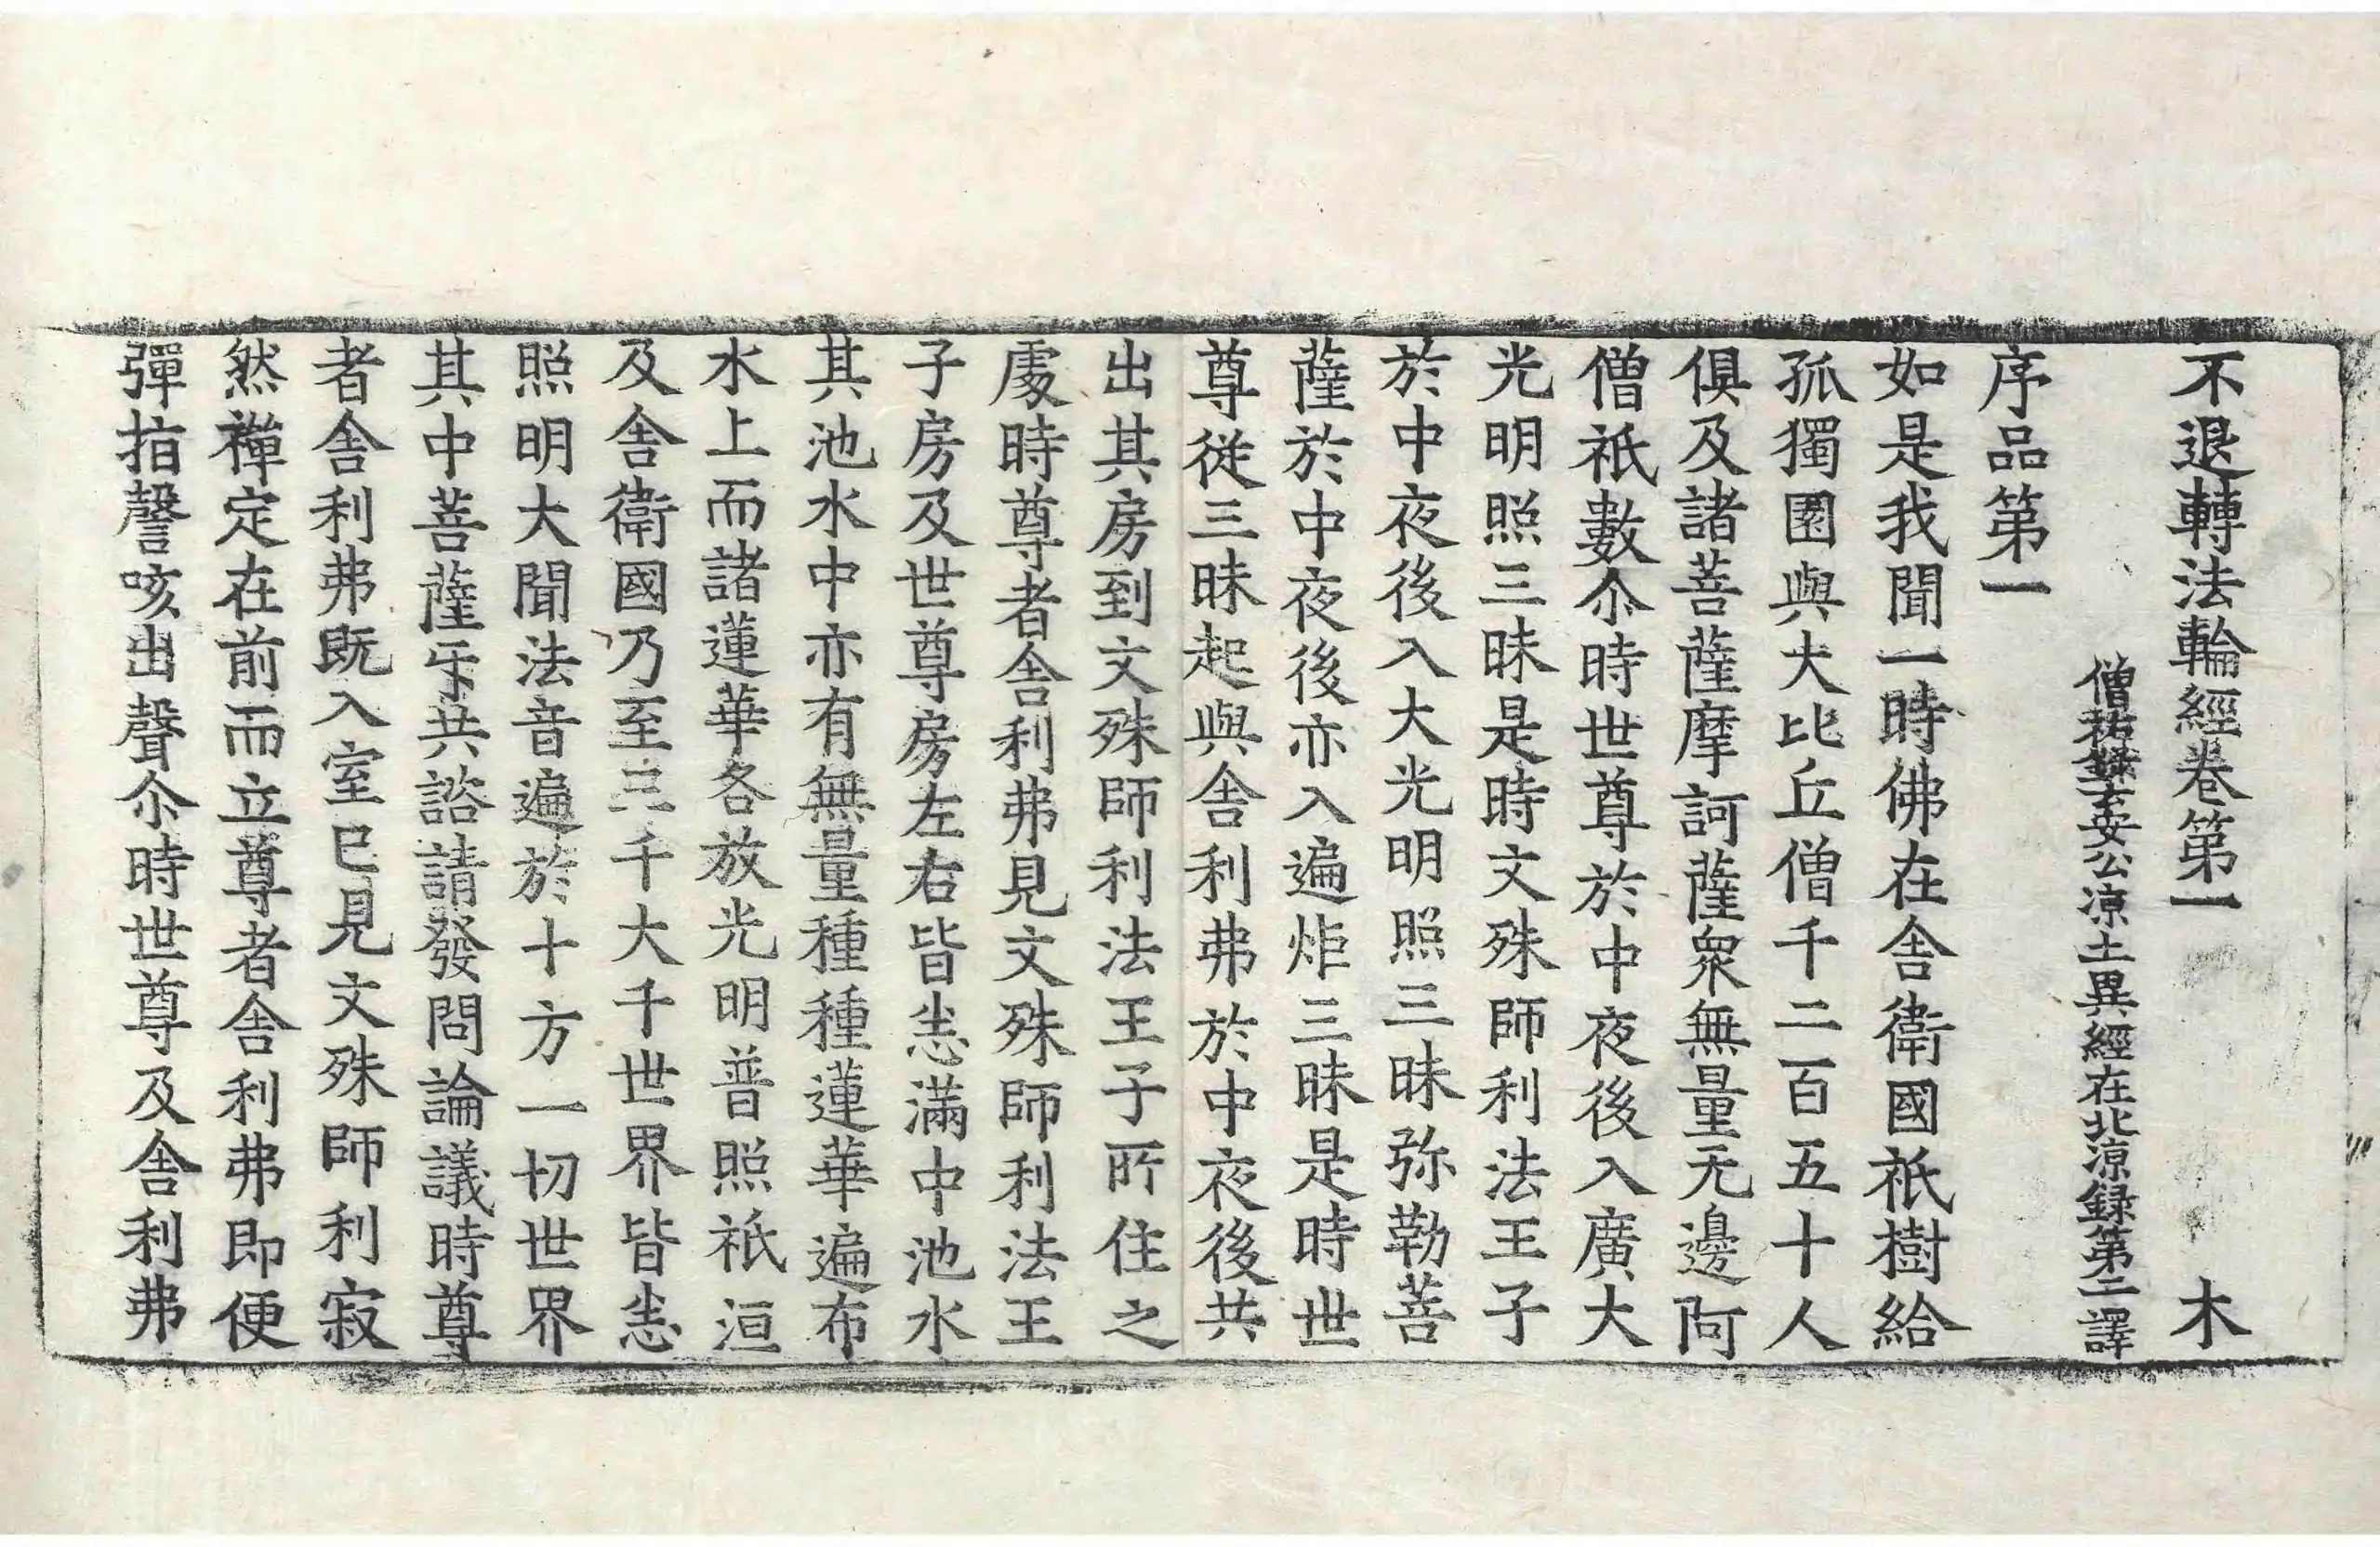 不退轉法輪經卷第一 木
僧祐録云安公凉土異經在北凉録第二譯
序品第一
如是我聞一時佛在舎衛國祇樹給
孤獨園與大比丘僧千二百五十人
俱及諸菩薩摩訶薩衆無量无邊阿
僧祇數尒時世尊於中夜後入廣大
光明照三昧是時文殊師利法王子
於中夜後入大光明照三昧弥勒菩
薩於中夜後亦入遍炬三昧是時世
尊從三昧起與舎利弗於中夜後共
出其房到文殊師利法王子所住之
處時尊者舎利弗見文殊師利法王
子房及世尊房左右皆悉滿中池水
其池水中亦有無量種種蓮華遍布
水上而諸蓮華各放光明普照祇洹
及舎衛國乃至三千大千世界皆悉
照明大聞法音遍於十方一切世界
其中菩薩㸦共諮請發問論議時尊
者舎利弗既入室已見文殊師利寂
然禪定在前而立尊者舎利弗即便
彈指謦咳出聲尒時世尊及舎利弗